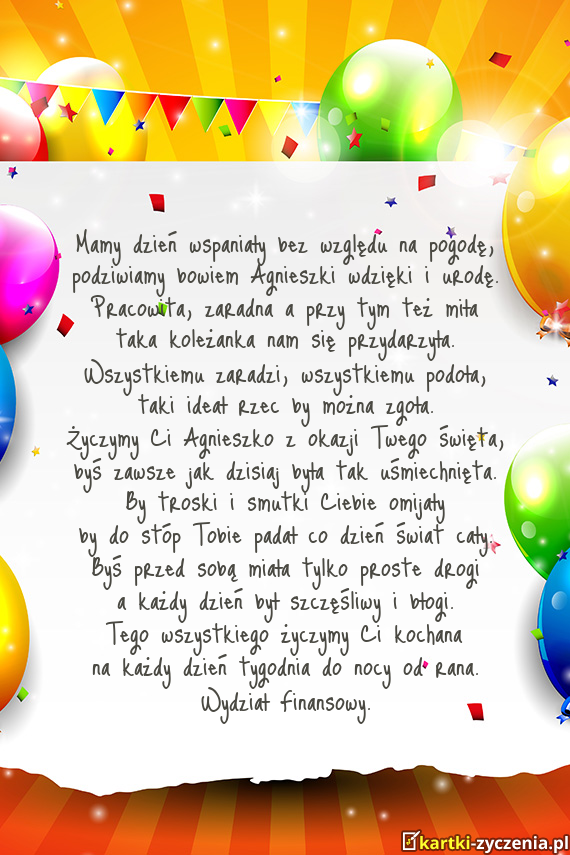 Mamy dzień wspaniały bez względu na pogodę,
podziwiamy bowiem Agnieszki wdzięki i urodę.
Pracowita, zaradna a przy tym też miła
taka koleżanka nam się przydarzyła.
Wszystkiemu zaradzi, wszystkiemu podoła,
taki ideał rzec by można zgoła.
Życzymy Ci Agnieszko z okazji Twego święta,
byś zawsze jak dzisiaj była tak uśmiechnięta.
By troski i smutki Ciebie omijały
by do stóp Tobie padał co dzień świat cały.
Byś przed sobą miała tylko proste drogi
a każdy dzień był szczęśliwy i błogi.
Tego wszystkiego życzymy Ci kochana
na każdy dzień tygodnia do nocy od rana.
Wydział finansowy.
kartki-zyczenia.pl